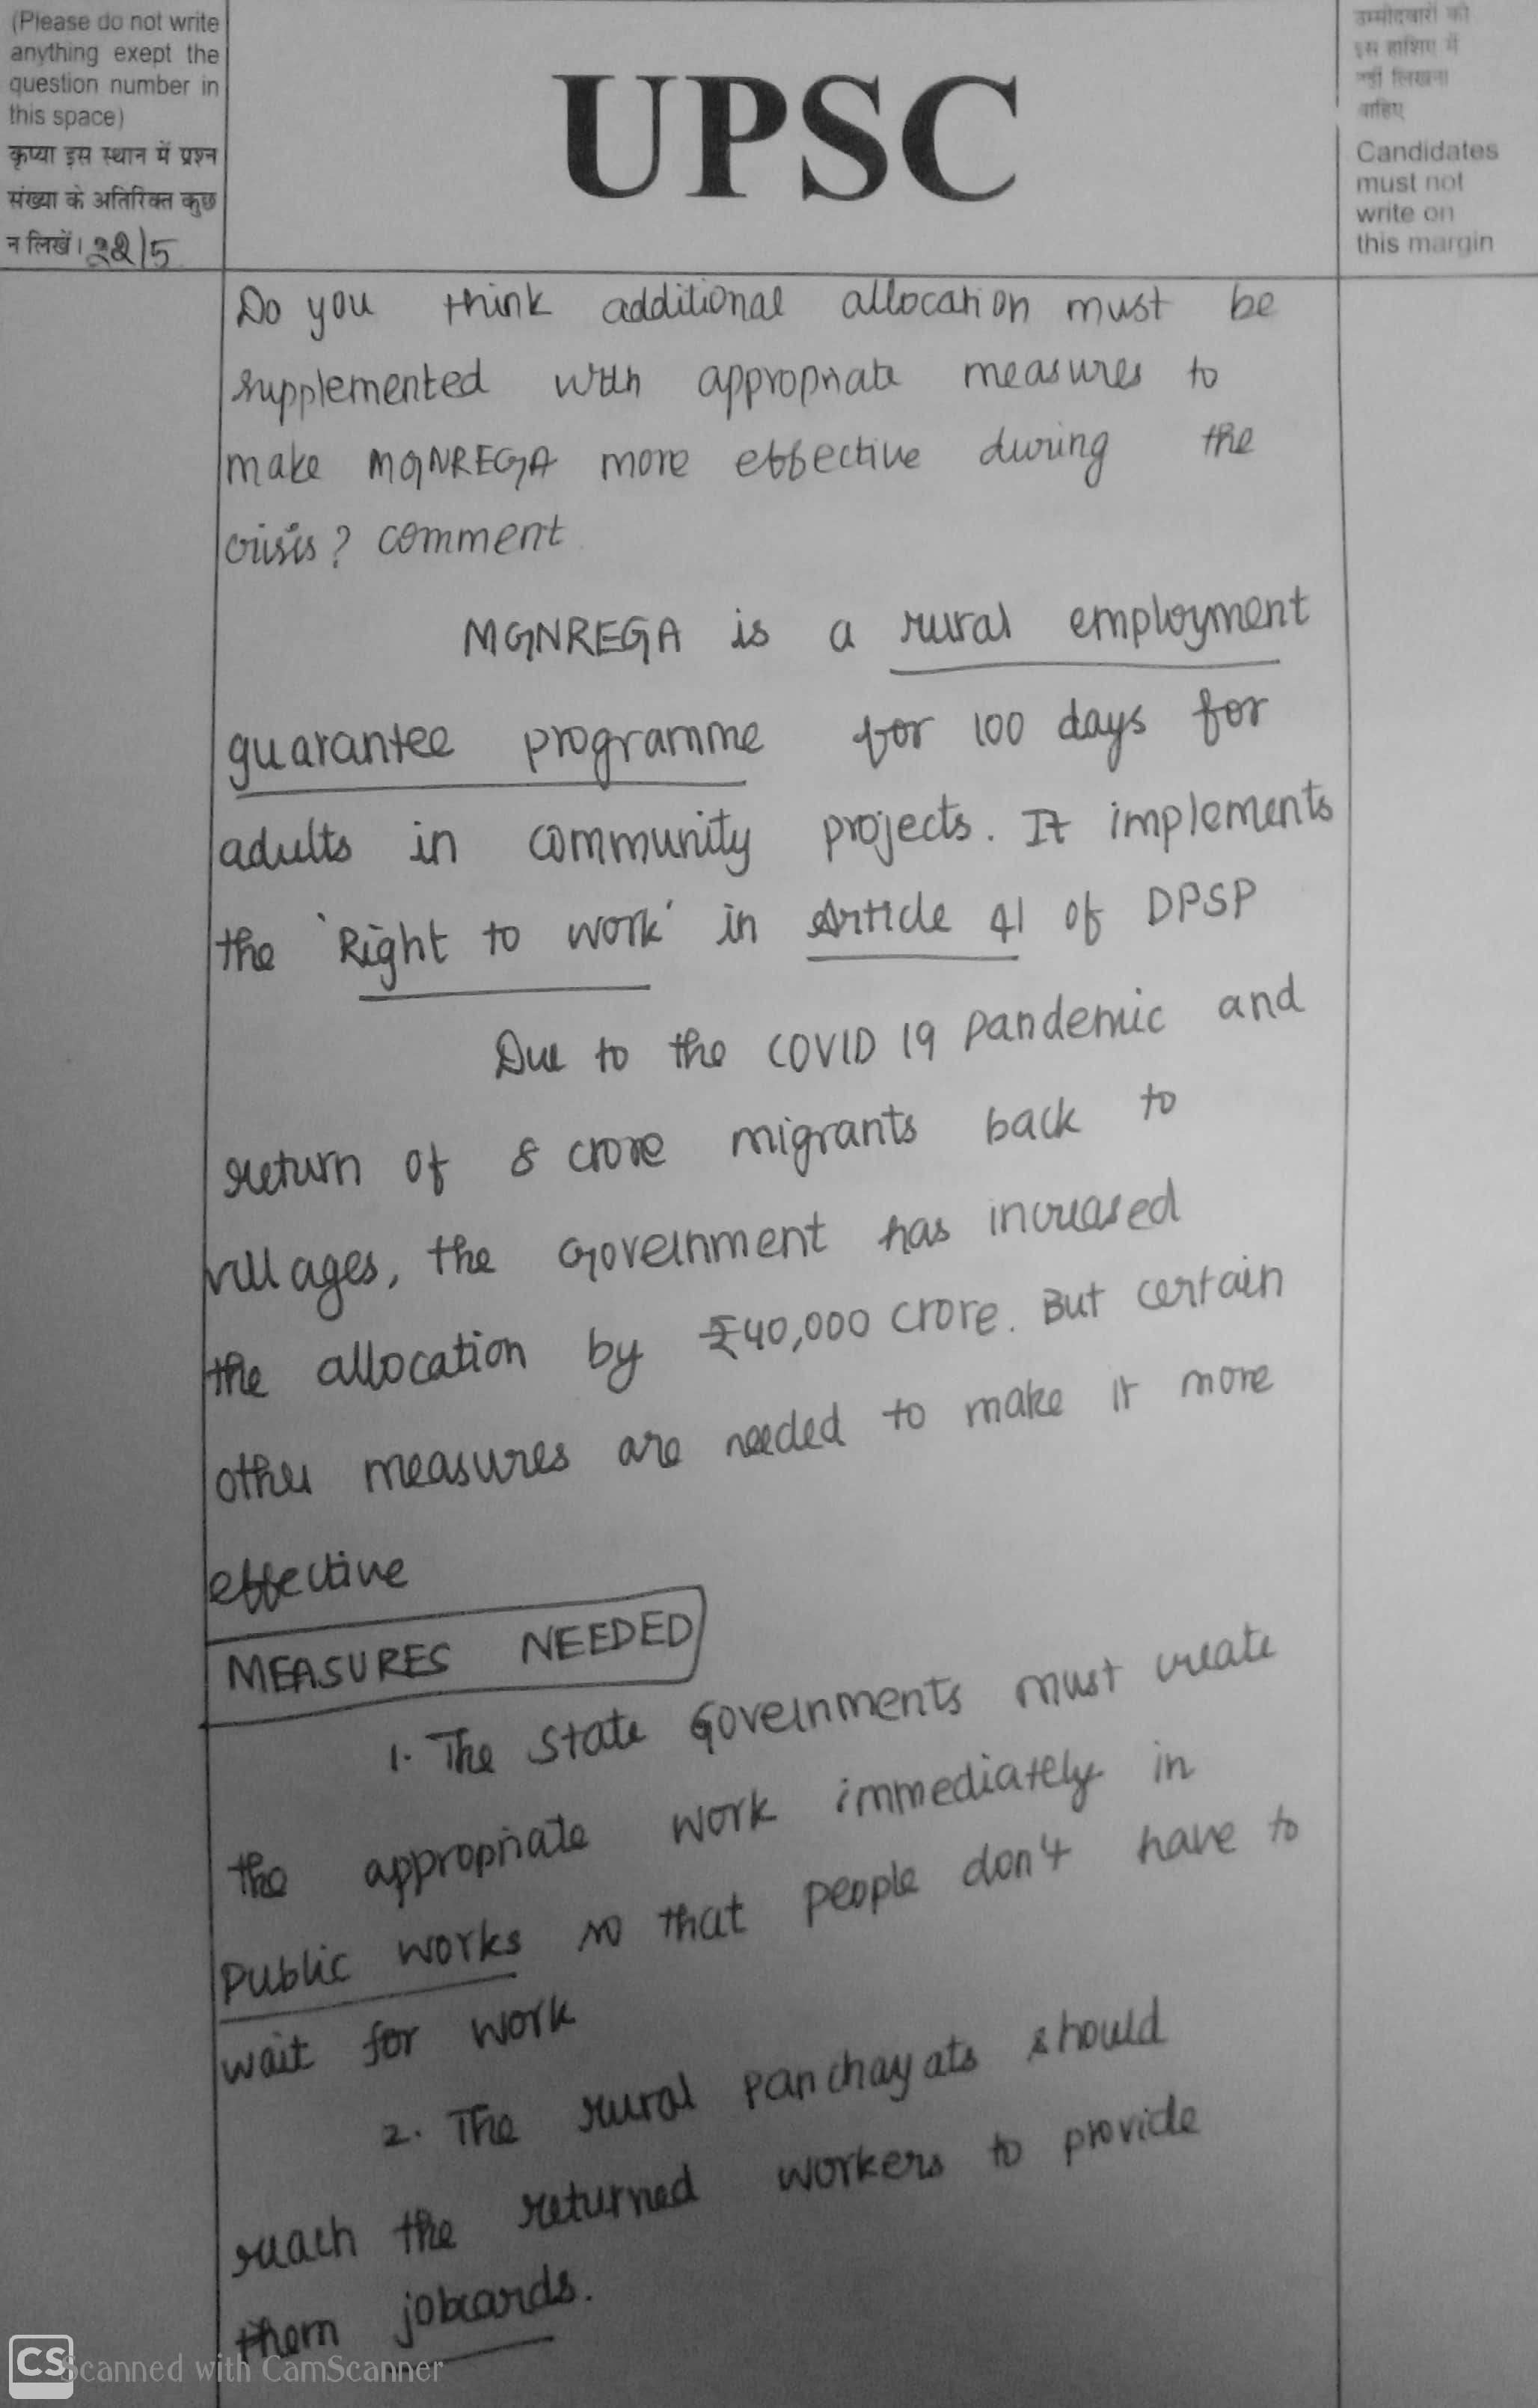 (Please do not write
anything exept the
question number in
this space)
कृप्या इस स्थान में प्रश्न
संख्या के अतिरिक्त कुछ
न लिखें। 22/5
UPSC
उम्मीदवारों को
इस हाशिए में
नहीं लिखना
चाहिए
Candidates
must not
write on
this margin
Do you think additional allocation must be
supplemented with appropriate measures to
make MGNREGA more effective during the
crisis? comment
MGNREGA is a rural employment
guarantee programme for 100 days for
adults in community projects. It implements
the 'Right to work' in Article 41 of DPSP
Due to the COVID 19 pandemic and
return of 8 crore migrants back to
villages, the Government has increased
the allocation by ₹40,000 crore. But certain
other measures are needed to make it more
effective
MEASURES NEEDED
1. The State Governments must create
the appropriate work immediately in
Public works so that people don't have to
wait for work
2. The rural panchayats should
reach the returned workers to provide
them jobcards.
CS Scanned with CamScanner